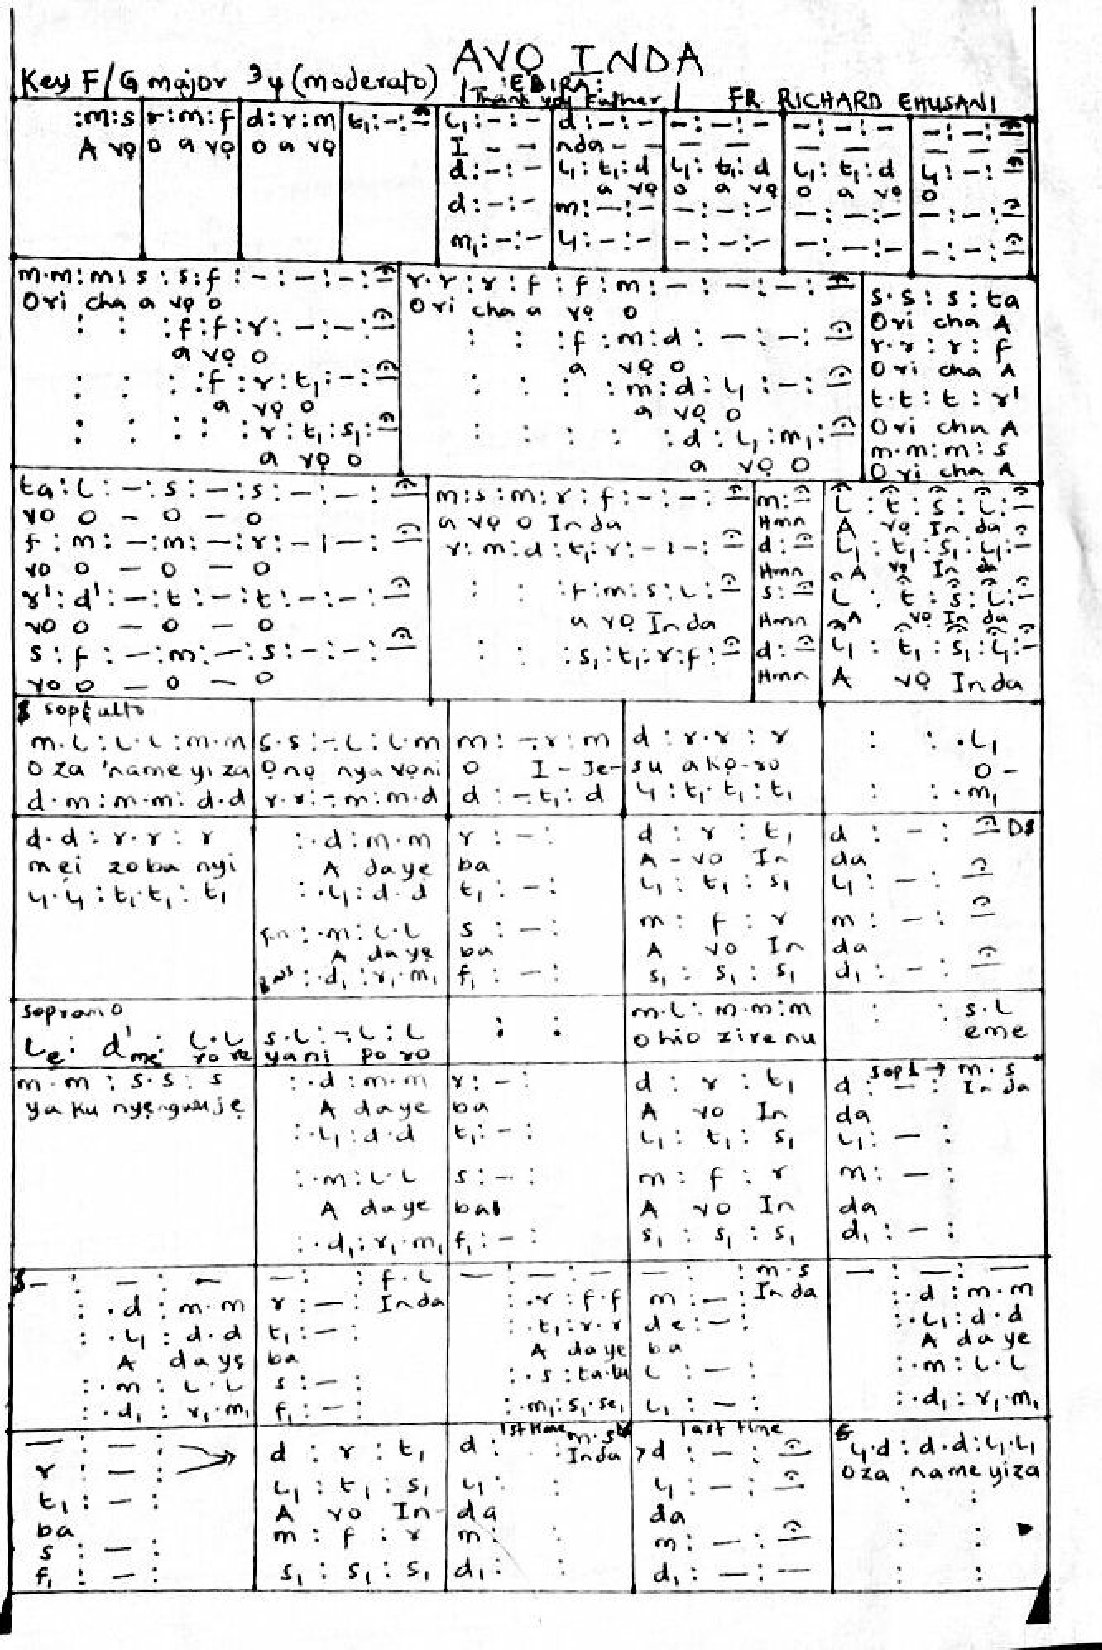 AVỌ INDA
Key F/G major 3/4 (moderato) :EBIRA:
Thank you Father FR RICHARD EHUSANI
:m:s | r:m:f | d:r:m | t₁:-:- | l₁:-:- | d:-:- | -:-:- | -:-:- | -:-:-
A vọ | o a vọ | o a vọ | I - - | nda - - - - - - -
d:-:- | l₁:t₁:d | l₁:t₁:d | l₁:t₁:d | l₁:-:-
a vọ | o a vọ | o a vọ | o
d:-:- | m:-:- | -:-:- | -:-:- | -:-:-
m₁:-:- | l₁:-:- | -:-:- | -:-:- | -:-:-
m.m:m:s:s:f:-:-:-:- | r.r:r:f:f:m:-:-:-:- | s.s:s:ta
Ori cha a vọ o | Ori cha a vọ o | Ori cha A
: : :f:f:r:-:-:- | : : :f:m:d:-:-:- | r.r:r:f
a vọ o | a vọ o | Ori cha A
: : : :f:r:t₁:-:- | : : : :m:d:l₁:-:- | t.t:t:r'
a vọ o | a vọ o | Ori cha A
: : : : :r:t₁:s₁:- | : : : : :d:l₁:m₁:- | m.m:m:s
a vọ o | a vọ o | Ori cha A
ta:l:-:s:-:s:-:-:- | m:s:m:r:f:-:-:- | m:- | l:t:s:l:-
vo o - o - o | a vọ o Inda | Hmn | A vo In da
f:m:-:m:-:r:-:-:- | r:m:d:t₁:r:-:-:- | d:- | l₁:t₁:s₁:l₁:-
vo o - o - o | Hmn | A vo In
r':d':-:t:-:t:-:-:- | : : :f:m:s:l:- | s:- | l:t:s:l:-
vo o - o - o | a vọ Inda | Hmn | A vo In da
s:f:-:m:-:s:-:-:- | : : :s₁:t₁:r:f:- | d:- | l₁:t₁:s₁:l₁:-
vo o - o - o | Hmn | A vọ Inda
m.l:l.l:m.m | s.s:-.l:l.m | m:-.r:m | d:r.r:r | : :.l₁
Oza 'name yiza | Ọnọ nyavọni | O I-Je- | su akọ-ro | O-
d.m:m.m:d.d | r.r:-.m:m.d | d:-.t₁:d | l₁:t₁.t₁:t₁ | : :.m₁
d.d:r.r:r | :.d:m.m | r:-: | d:r:t₁ | d:-:- DS
mei zoba nyi | A daye | ba | A-vo In | da
l₁.l₁:t₁.t₁:t₁ | :.l₁:d.d | t₁:-: | l₁:t₁:s₁ | l₁:-:-
:.m:l.l | s:-: | m:f:r | m:-:-
A daye | ba | A vo In | da
:.d₁:r₁.m₁ | f₁:-: | s₁:s₁:s₁ | d₁:-:-
soprano | m.l:m.m:m | : :s.l
l:d':l.l | s.l:-.l:l | : : | Ohio zirenu | eme
yani po ro
m.m:s.s:s | :.d:m.m | r:-: | d:r:t₁ | d:-: m.s
A daye | ba | A vo In | da Inda
:.l₁:d.d | t₁:-: | l₁:t₁:s₁ | l₁:-:
:.m:l.l | s:-: | m:f:r | m:-:
A daye | ba | A vo In | da
:.d₁:r₁.m₁ | f₁:-: | s₁:s₁:s₁ | d₁:-:
-:-:- | -: :f.l | -:-:- | -: :m.s | -:-:-
:.d:m.m | r:-: Inda | :.r:f.f | m:-: Inda | :.d:m.m
:.l₁:d.d | t₁:-: | :.t₁:r.r | de:-: | :.l₁:d.d
A daye | ba | A daye | ba | A daye
:.m:l.l | s:-: | l:-: | :.m:l.l
:.d₁:r₁.m₁ | f₁:-: | :.m₁:s₁.se₁ | l₁:-: | :.d₁:r₁.m₁
1st time last time
-:-: | d:r:t₁ | d: :m.s | d:-:- | l₁.d:d.d:l₁.l₁
r:-: | Inda | Oza name yiza
t₁:-: | l₁:t₁:s₁ | l₁: : | l₁:-:- | : :
ba | A vo In- | da | da
s:-: | m:f:r | m: : | m:-:- | : :
f₁:-: | s₁:s₁:s₁ | d₁: : | d₁:-:- | : :